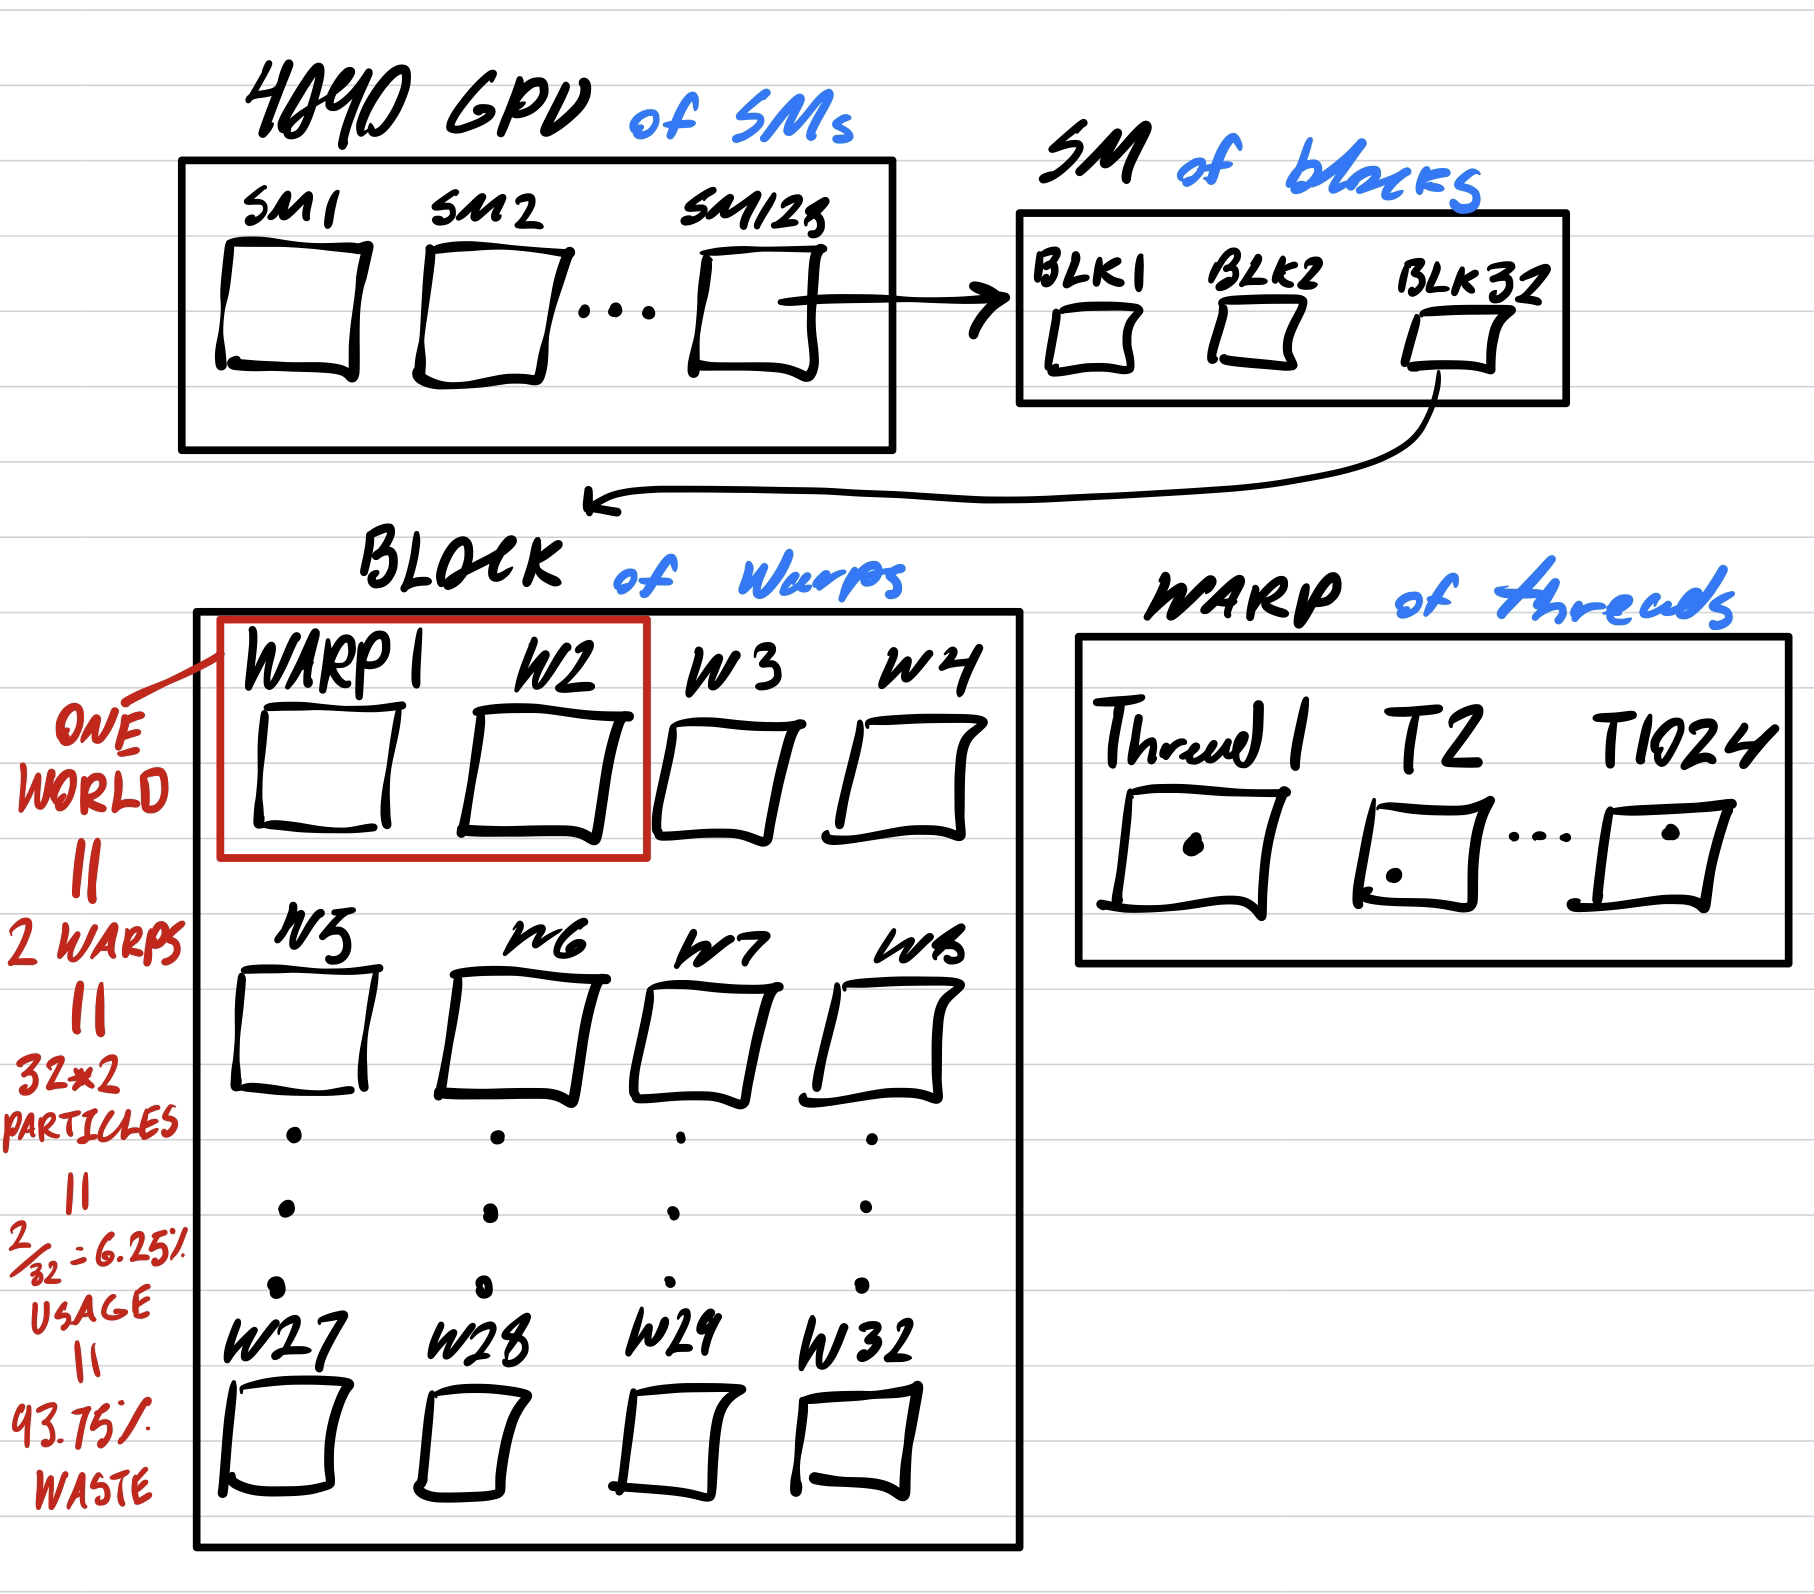 4090 GPU of SMs
SM1 SM2 SM128
SM of blocks
BLK1 BLK2 BLK32
BLOCK of Warps
WARP 1 W2 W3 W4
W5 W6 W7 W8
W27 W28 W29 W32
ONE
WORLD
||
2 WARPS
||
32*2
PARTICLES
||
2/32 = 6.25%
USAGE
||
93.75%
WASTE
WARP of threads
Thread 1 T2 T1024